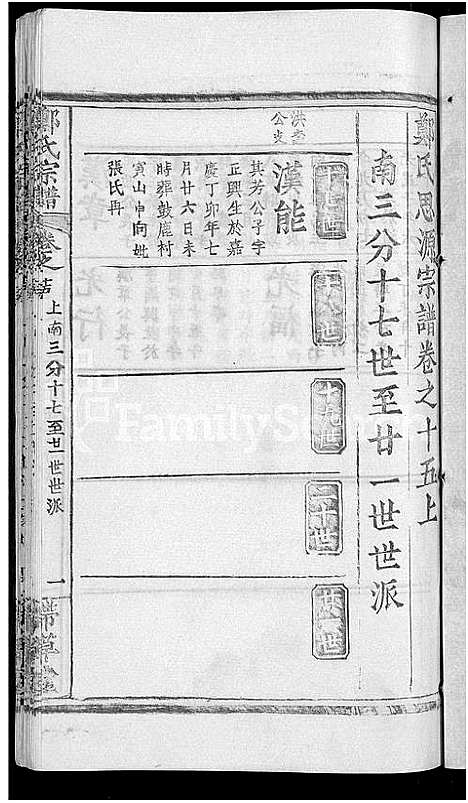 鄭氏思源宗譜卷之十五上
南三分十七世至廿一世世派
十七世
十八世
十九世
二十世
廿一世
洪奎
公支
漢能
其芳公子字
正興生於嘉
慶丁卯年七
月廿六日未
時葬鼓鹿村
寅山申向妣
張氏再
鄭氏宗譜
卷之
上南三分十七至廿一世世派
一
帶草
FamilySearch